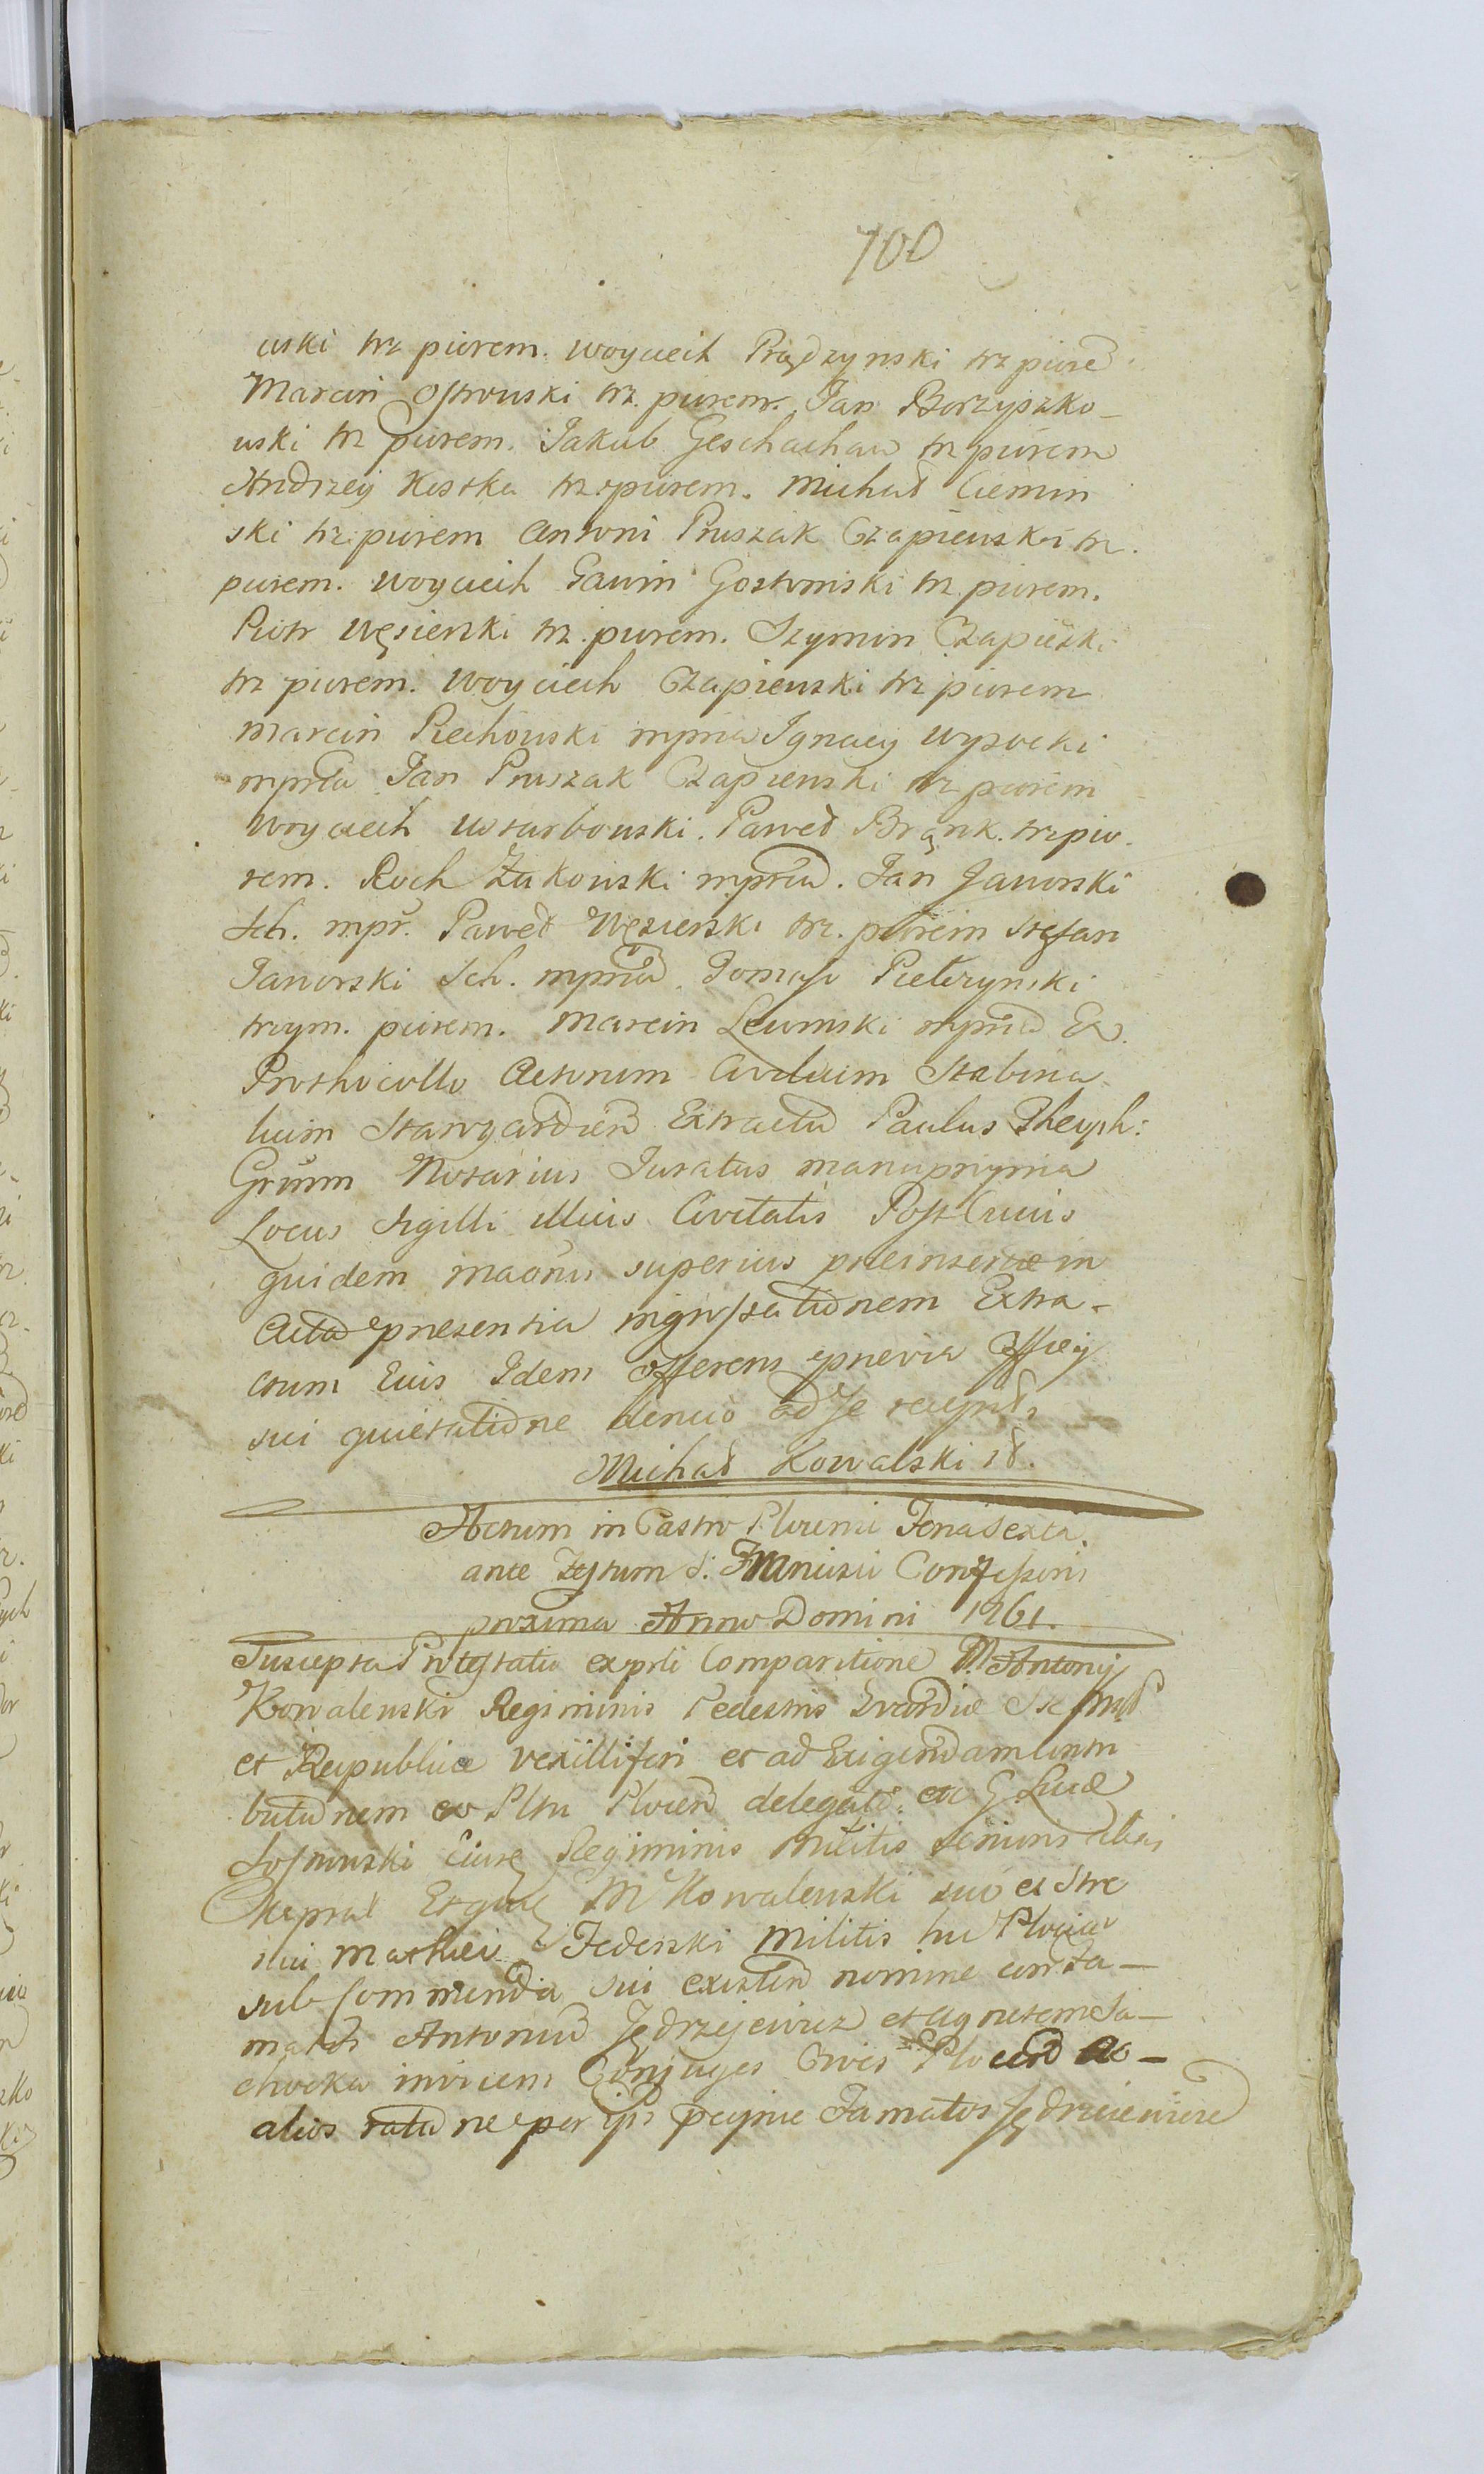 700
wski trz piorem. Woyciech Prądzynski trz piorē
Marcin Ostrowski trz. piorem. Jan Borzyszko-
wski trz piorem. Jakub Geschachaw trz piorem
Andrzey Kostka trz. piorem. Michał Ciemin
ski trz. piorem Antoni Pruszak Czapiewski trz.
piorem. Woyciech Gawin Gostomski trz. piorem.
Piotr Węsierski trz. piorem. Szymon Czapiewski
trz piorem. Woyciech Czapiewski trz piorem
Marcin Piechowski mpria Ignacy Wysocki
mpria Jan Pruszak Czapiewski trz piorem
Woyciech Wstarbowski. Paweł Brąnk. trz pio-
rem. Roch Żukowski mpria. Jan Janorski
Sch. mpr. Paweł Węsierski trz. piorem Stefan
Janorski Sch. mpria. Tomasz Pietrzynski
trzym. piorem. Marcin Lewinski mpria Ex
Prothocollo Actorum Civilium Stabina-
lium Stargardien Extractu Paulus Theoph:
Grimm Notarius Juratus manupropria
Locus Sigilli illius Civitatis Post Cuius
quidem super superius preinsertæ in
Acta presentia ingrossationem Extra-
ctum Eius Idem Offerens prævia Officij
sui quietatione denuo ad se recepit
Michał Kowalski id.
Actum in Castro Plocensi Feria Sexta
ante Festum S: Francisci Confessoris
proxima Anno Domini 1761.
Suscepta Protestatio ex prli Comparitione M. Antonij
Kowalewski Regiminis Pedestris Gvardiæ
et Reipublicæ vexilliferi et ad Exigendam Contri
butionem ex Pltu Plocen delegati. et G. Lucæ
Sosnowski Eiusq Regiminis Militis Senioris alias
Kaprał M Kowalewski suo et Stre
nui Mathiei Federski Militis hic Plociæ
sub Commenda sui existen nomine contra
Antonium Jędrzejewicz et Agnetem Sa-
chocka invicem Conjuges Cives Plocen ac
alios ratione per Famatos Jędrzeiewicze